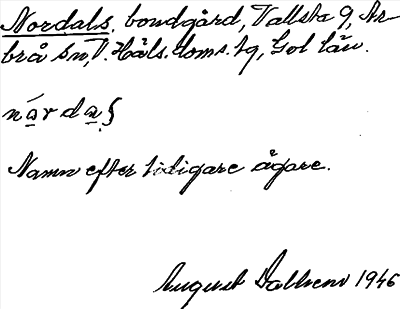 Nordals. bondgård, Vallsta 9, Ar-
brå sn, Häls. doms. tg, Gol län.
Namn efter tidigare ägare.
August Dalhem 1946